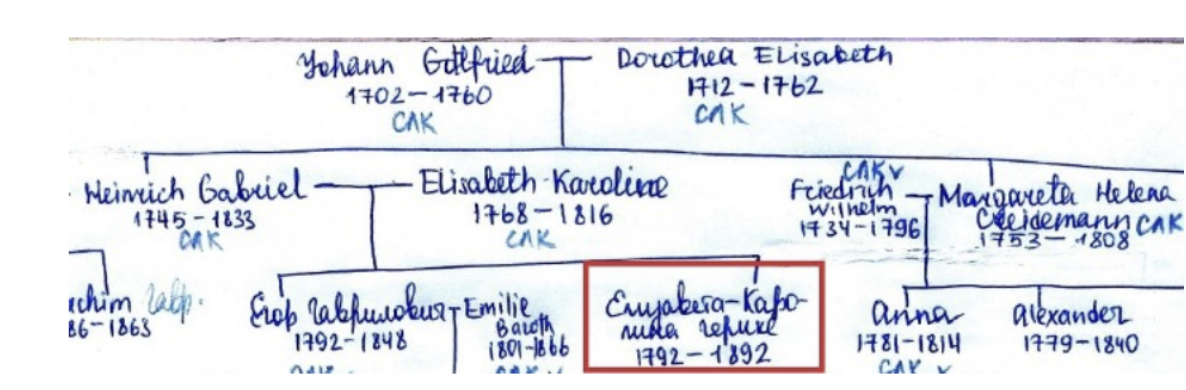 Yohann Gotlfried
1702 – 1760
САК
Dorothea Elisabeth
1712 – 1762
САК
Heinrich Gabriel
1745 – 1833
САК
Elisabeth-Karoline
1768 – 1816
САК
САК v
Friedrich
Wilhelm
1734 – 1796
Margareta Helena
1753 – 1808
САК
achim
86–1863
Егор Гаврилович
1792 – 1848
Emilie
1801–1866
Елизавета-Каро-
лина Герике
1792 – 1892
Anna
1781 – 1814
САК v
Alexander
1779 – 1840